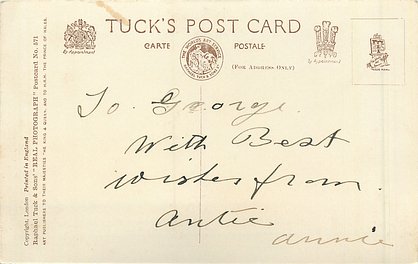 TUCK'S POST CARD
CARTE POSTALE
(FOR ADDRESS ONLY)
By Appointment
By Appointment
To. George.
With Best
wishes from.
Antie
Annie
Copyright. London Printed in England
Raphael Tuck & Sons' "REAL PHOTOGRAPH" Postcard No. 571
ART PUBLISHERS TO THEIR MAJESTIES THE KING & QUEEN, AND TO H.R.H. THE PRINCE OF WALES.